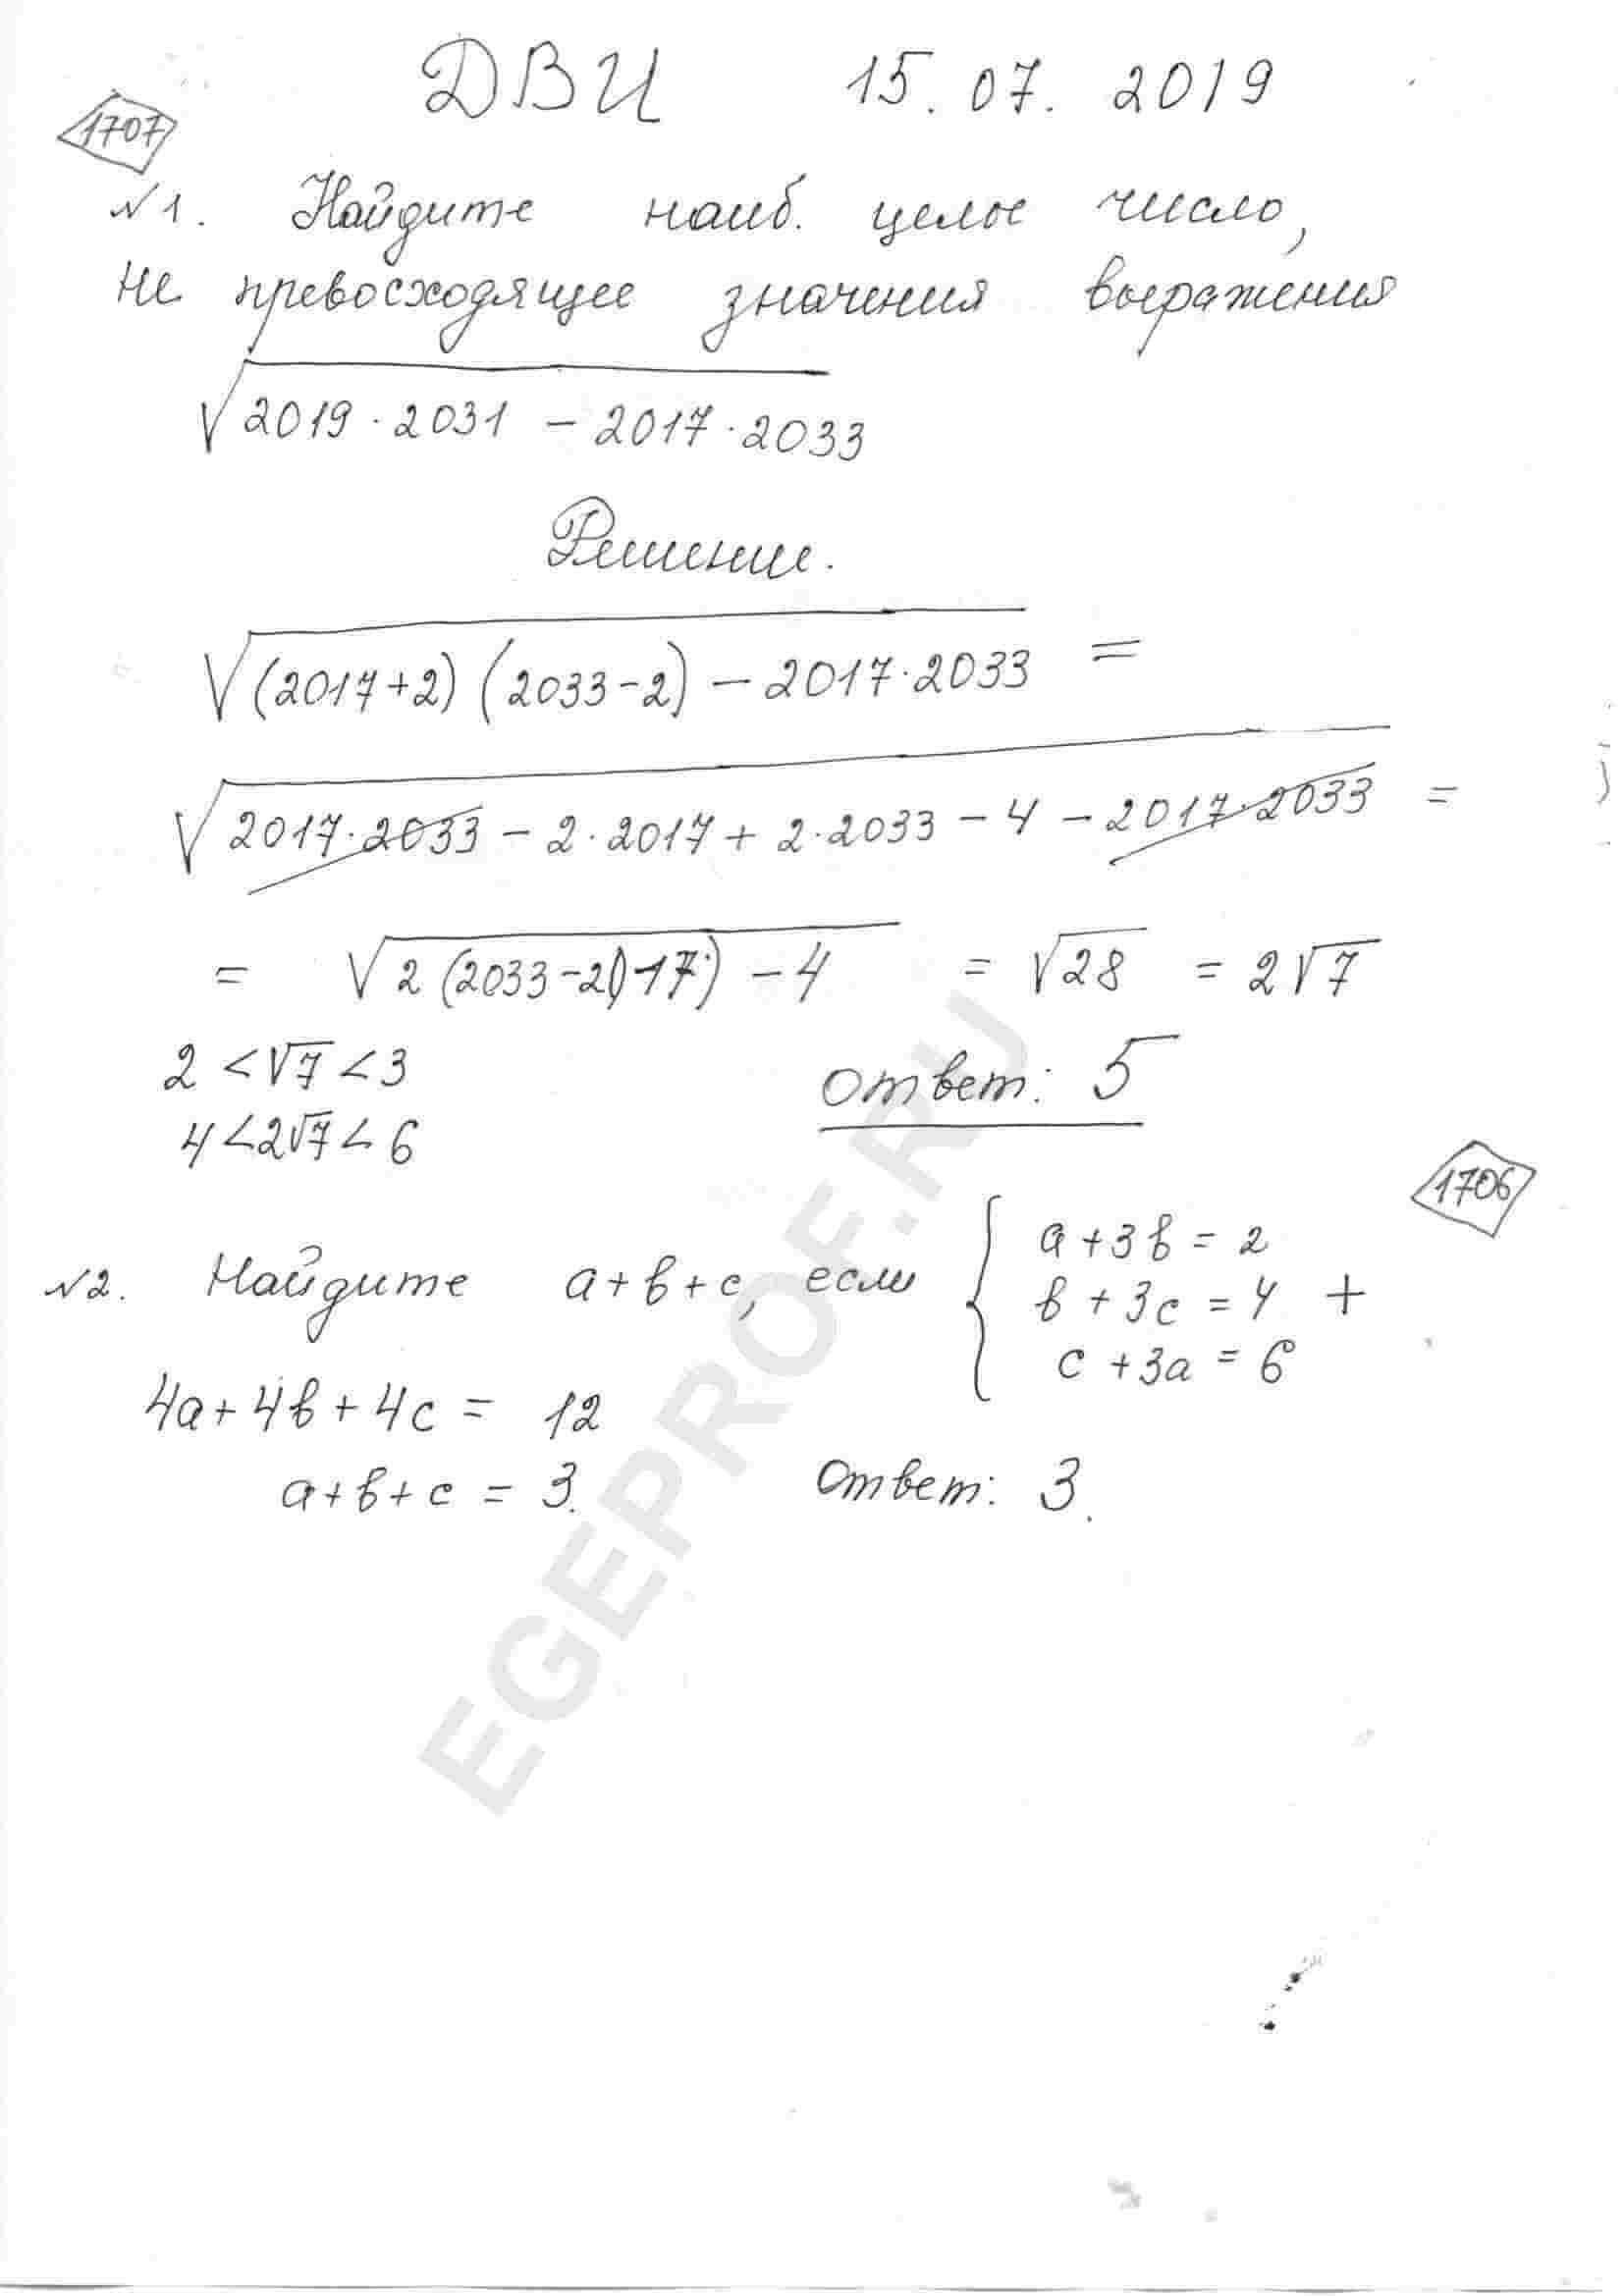 ДВИ 15.07.2019
1707
№1. Найдите наиб. целое число,
не превосходящее значения выражения
√2019·2031 − 2017·2033
Решение.
√(2017+2)(2033−2) − 2017·2033 =
√2017·2033 − 2·2017 + 2·2033 − 4 − 2017·2033 =
= √2(2033−2017) − 4 = √28 = 2√7
2 < √7 < 3
4 < 2√7 < 6
ответ: 5
1706
№2. Найдите a+b+c, если { a+3b = 2
b+3c = 4 +
c+3a = 6
4a+4b+4c = 12
a+b+c = 3.
Ответ: 3.
EGEPROF.RU